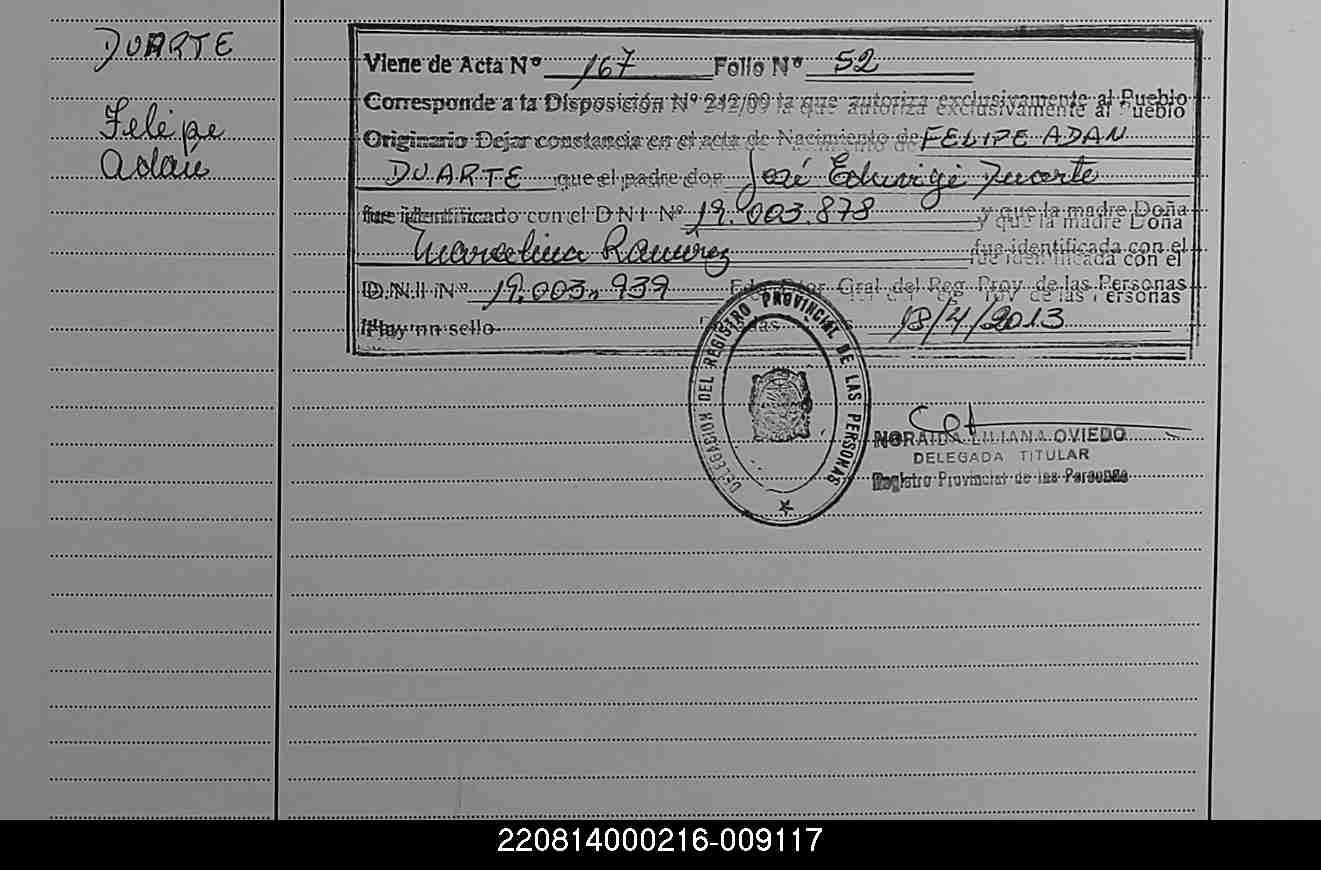 DUARTE
Felipe
Adan
Viene de Acta Nº 167 Folio Nº 52
Corresponde a la Disposición Nº 242/09 la que autoriza exclusivamente al Pueblo
Originario Dejar constancia en el acta de Nacimiento de FELIPE ADAN
DUARTE que el padre don José Eduvigi Duarte
fue identificado con el D N I Nº 19.003.878 y que la madre Doña
Marcelina Ramirez fue identificada con el
D.N.I Nº 19.003.939 Gral del Reg Prov de las Personas
Hay un sello 18/4/2013
DELEGACION DEL REGISTRO PROVINCIAL DE LAS PERSONAS
NORAIDA LILIANA OVIEDO
DELEGADA TITULAR
Registro Provincial de las Personas
220814000216-009117